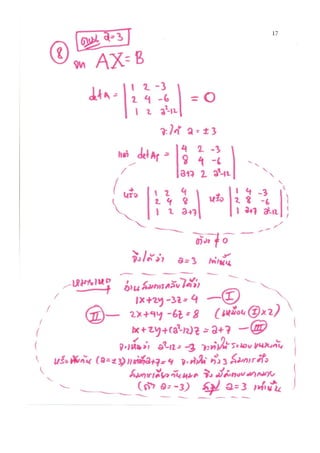 17
ตอบ a=3
8
จาก AX=B
detA = | 1 2 -3 |
| 2 4 -6 | = 0
| 1 2 a²-12 |
จะได้ a = ±3
แต่ detA₁ = | 4 2 -3 |
| 8 4 -6 |
| a+7 2 a²-12 |
หรือ | 1 2 4 | หรือ | 1 4 -3 |
| 2 4 8 | | 2 8 -6 |
| 1 2 a+7 | | 1 a+7 a²-12 |
ต้อง ≠ 0
จึงได้ว่า a=3 เท่านั้น
หมายเหตุ อ่านสมการกลับได้ว่า
1x+2y-3z=4 — I
II — 2x+4y-6z=8 (เหมือน I×2)
1x+2y+(a²-12)z = a+7 — III
จะเห็นว่า a²-12=-3 จะทำให้ระนาบขนานกัน
หรือทับกัน (a=±3) แต่ถ้า a+7=4 จะทำให้ทั้ง 3 สมการคือ
สมการเดียวกันหมด ซึ่งมีคำตอบมากมาย
(ถ้า a=-3) a=3 เท่านั้น